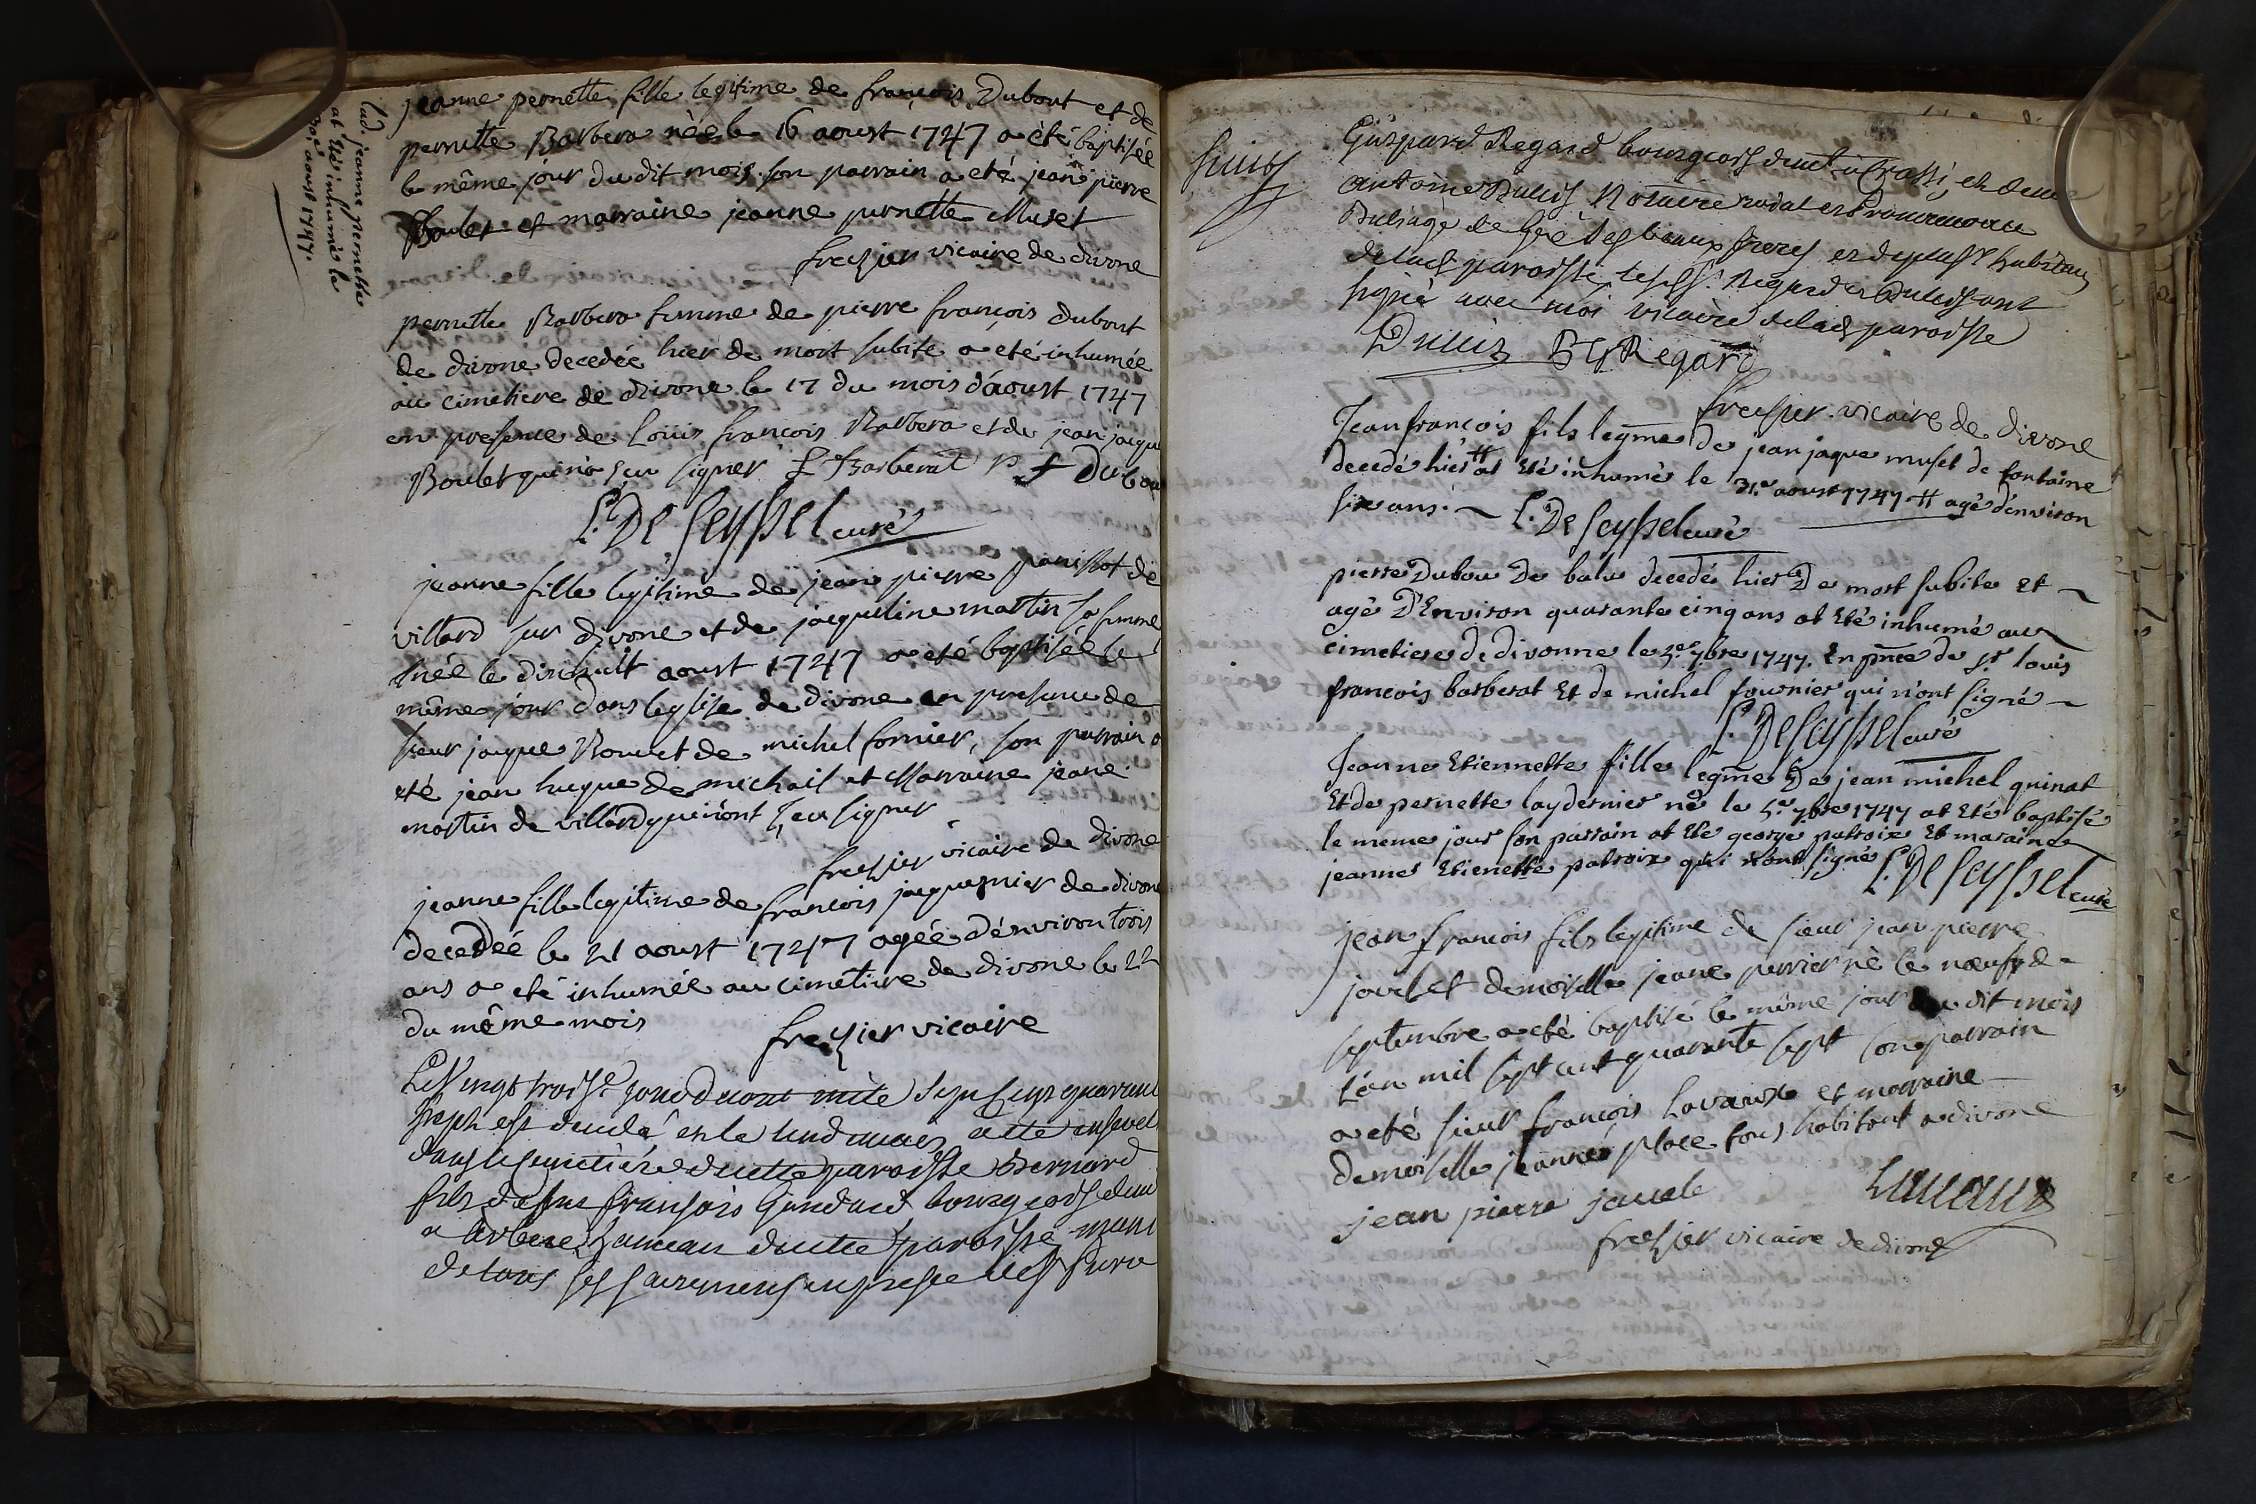 lad. jeanne pernette
at été inhumée le
aoust 1747.
jeanne pernette fille legitime de françois Dubout et de
pernette Barbera née le 16 aoust 1747 a été baptisée
le même jour du dit mois. son parrain a eté jean pierre
Boulet et marraine jeanne pernette Muset
frezier vicaire de divone
pernette Barbera femme de pierre françois dubout
de divone decedée hier de mort subite a eté inhumée
au cimetiere de divone le 17 du mois d'aoust 1747
en presence de Loüis françois Barbera et de jean jaque
Boulet qui n'a sçu signer L f Barberat P f Dubou
L. De Seyssel curé
jeanne fille legitime de jean pierre panissot de
villard sur divone et de jacqueline martin sa femme
née le dixhuit aoust 1747 a eté baptisée le
même jour dans leglise de divone en presence de
sieur jaque Rouet de michel fornier, son parrain a
eté jean huque de michail et Marraine jeane
martin de villard qui n'ont sçeu signer
frezier vicaire de divone
jeanne fille legitime de françois jaquenier de divone
decedée le 21 aoust 1747 agée d'environ trois
ans a eté inhumée au cimetiere de divone le 22
du même mois frezier vicaire
Le Vingt troise jour daout mile sept cent quarant
sept est decedé et le lendemain a été ensevel
dans le cimetière de cette paroisse Bernard
fils de feu françois Girodard bourgeois
a Arbere hameau de cette paroisse muni
de tous ses sacremens en presce des
suitte
Gaspard Regard bourgeois demt à Crassi et de me
antoine Duuis Notaire roial et Procureur au
Baliage de Gex ses beaux freres et de plus habitans
de lad paroisse lesd Srs Regard et Duuis ont
signé avec moi vicaire de lad paroisse
Duuis BG Regard
frezier vicaire de divone
Jean françois fils legme de jean jaque muset de fontaine
decedé hier # at eté inhumé le 31e aoust 1747 # agé d'environ
six ans. ~ L. De Seyssel curé
pierre Dubou De balu decedé hier De mort subite et ~
agé D'Environ quarante cinq ans at été inhumé au
cimetiere de divonne le 3e 7bre 1747. En pnce de sr louis
françois barberat Et de michel fournier qui n'ont signé ~
L. De Seyssel curé
Jeanne Etiennette fille legme De jean michel quinat
Et de pernette laydernier né le 5e 7bre 1747 at Eté baptisé
le meme jour son parrain at Eté george patroix Et maraine
jeanne Etienette patroix qui n'ont signé L. De Seyssel curé
jean françois fils legitime de sieur jean pierre
jovel et demoiselle jeane perrier né le noeuf de
septembre a eté baptisé le même jour du dit mois
l'an mil sept cent quarante sept son parrain
a eté sieur françois Lavaux et marraine
demoiselle jeanne place tous habitant a divone
jean pierre jauele Lauaux
frezier vicaire de divone